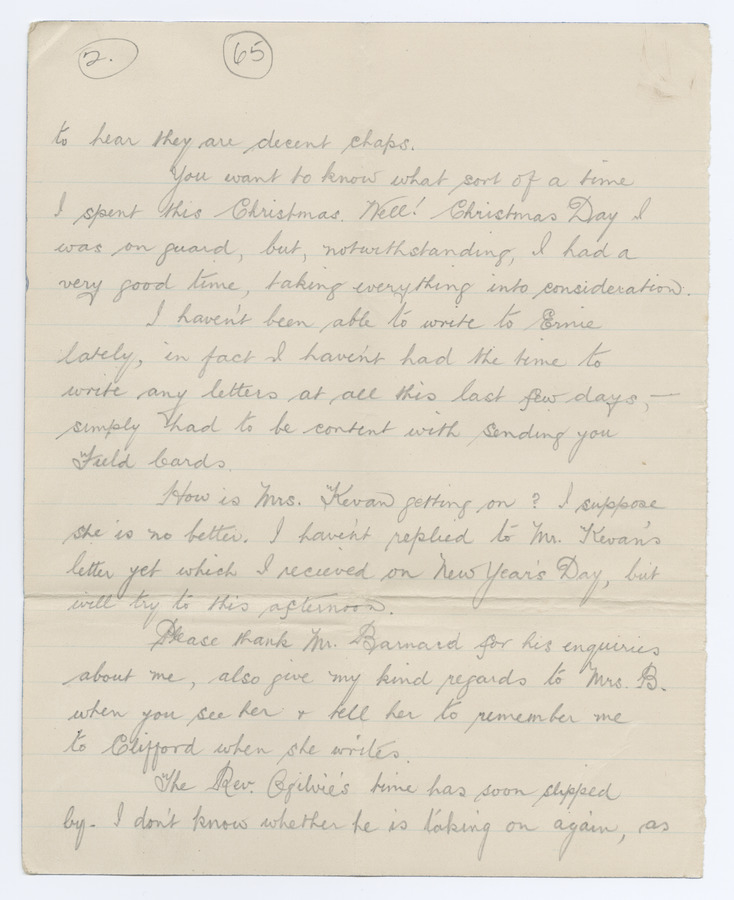 2. 65
to hear they are decent chaps.
You want to know what sort of a time
I spent this Christmas. Well! Christmas Day I
was on guard, but, notwithstanding, I had a
very good time, taking everything into consideration.
I haven't been able to write to Ernie
lately, in fact I haven't had the time to
write any letters at all this last few days, —
simply had to be content with sending you
Field Cards.
How is Mrs. Kevan getting on? I suppose
she is no better. I haven't replied to Mr. Kevan's
letter yet which I recieved on New Year's Day, but
will try to this afternoon.
Please thank Mr. Barnard for his enquiries
about me, also give my kind regards to Mrs. B.
when you see her & tell her to remember me
to Clifford when she writes.
The Rev. Ogilvie's time has soon slipped
by. I don't know whether he is taking on again, as